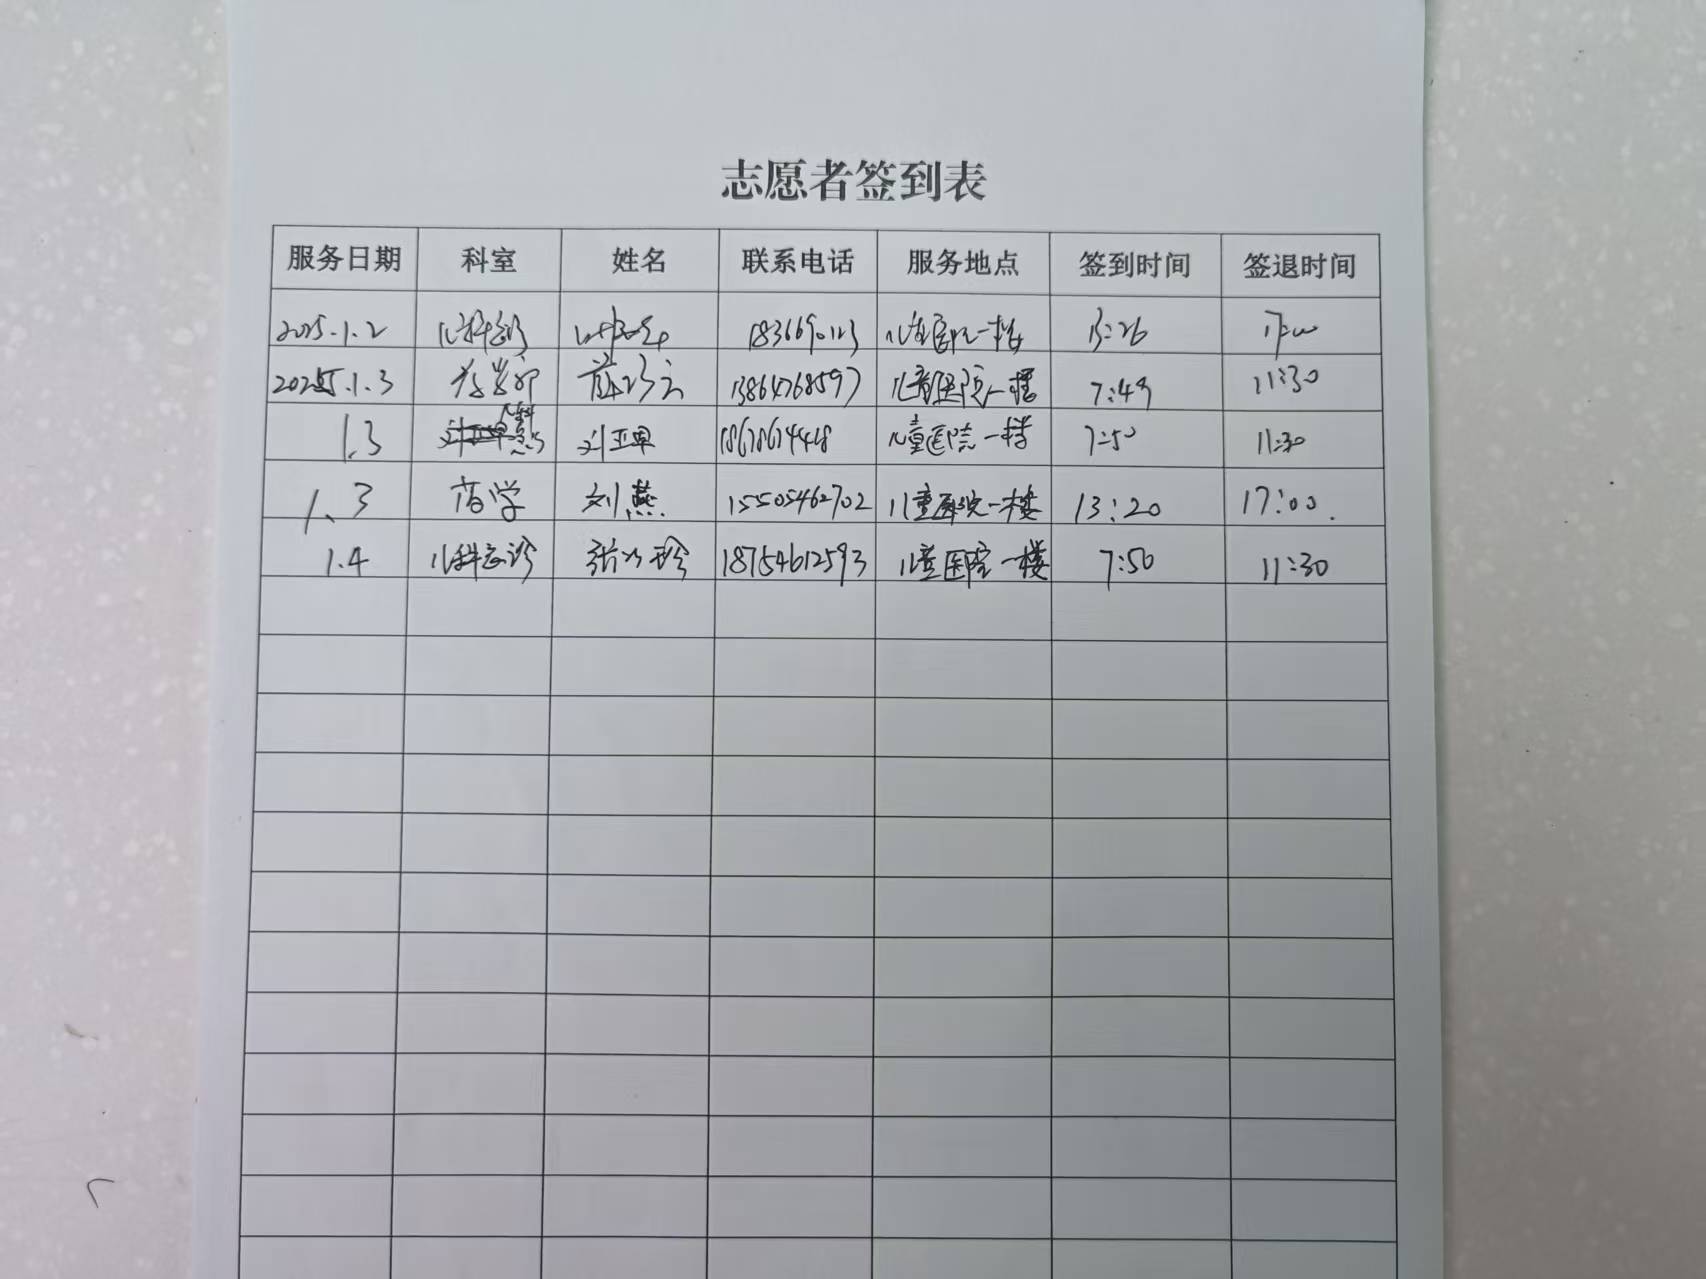 志愿者签到表
服务日期 科室 姓名 联系电话 服务地点 签到时间 签退时间
2025.1.2 儿科 儿童医院一楼 13:26 17:00
2025.1.3 药学部 13864768597 儿童医院一楼 7:49 11:30
1.3 儿科 儿童医院一楼 7:50 11:30
1.3 药学 刘燕 15505462702 儿童医院一楼 13:20 17:00.
1.4 儿科急诊 18754612593 儿童医院一楼 7:50 11:30